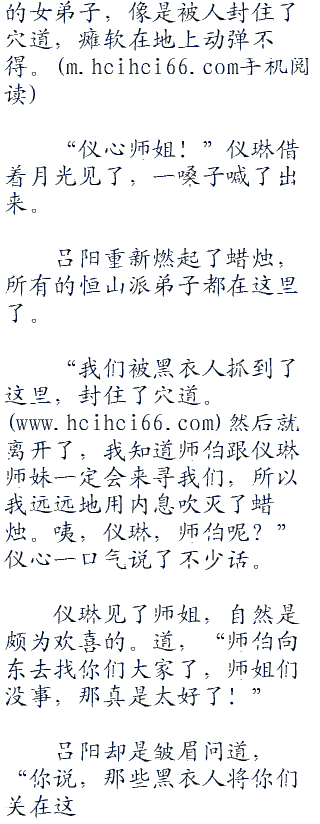 的女弟子，像是被人封住了
穴道，瘫软在地上动弹不
得。(m.hcihci66.com手机阅
读)
“仪心师姐！”仪琳借
着月光见了，一嗓子喊了出
来。
吕阳重新燃起了蜡烛，
所有的恒山派弟子都在这里
了。
“我们被黑衣人抓到了
这里，封住了穴道。
(www.hcihci66.com)然后就
离开了，我知道师伯跟仪琳
师妹一定会来寻我们，所以
我远远地用内息吹灭了蜡
烛。咦，仪琳，师伯呢？”
仪心一口气说了不少话。
仪琳见了师姐，自然是
颇为欢喜的。道，“师伯向
东去找你们大家了，师姐们
没事，那真是太好了！”
吕阳却是皱眉问道，
“你说，那些黑衣人将你们
关在这